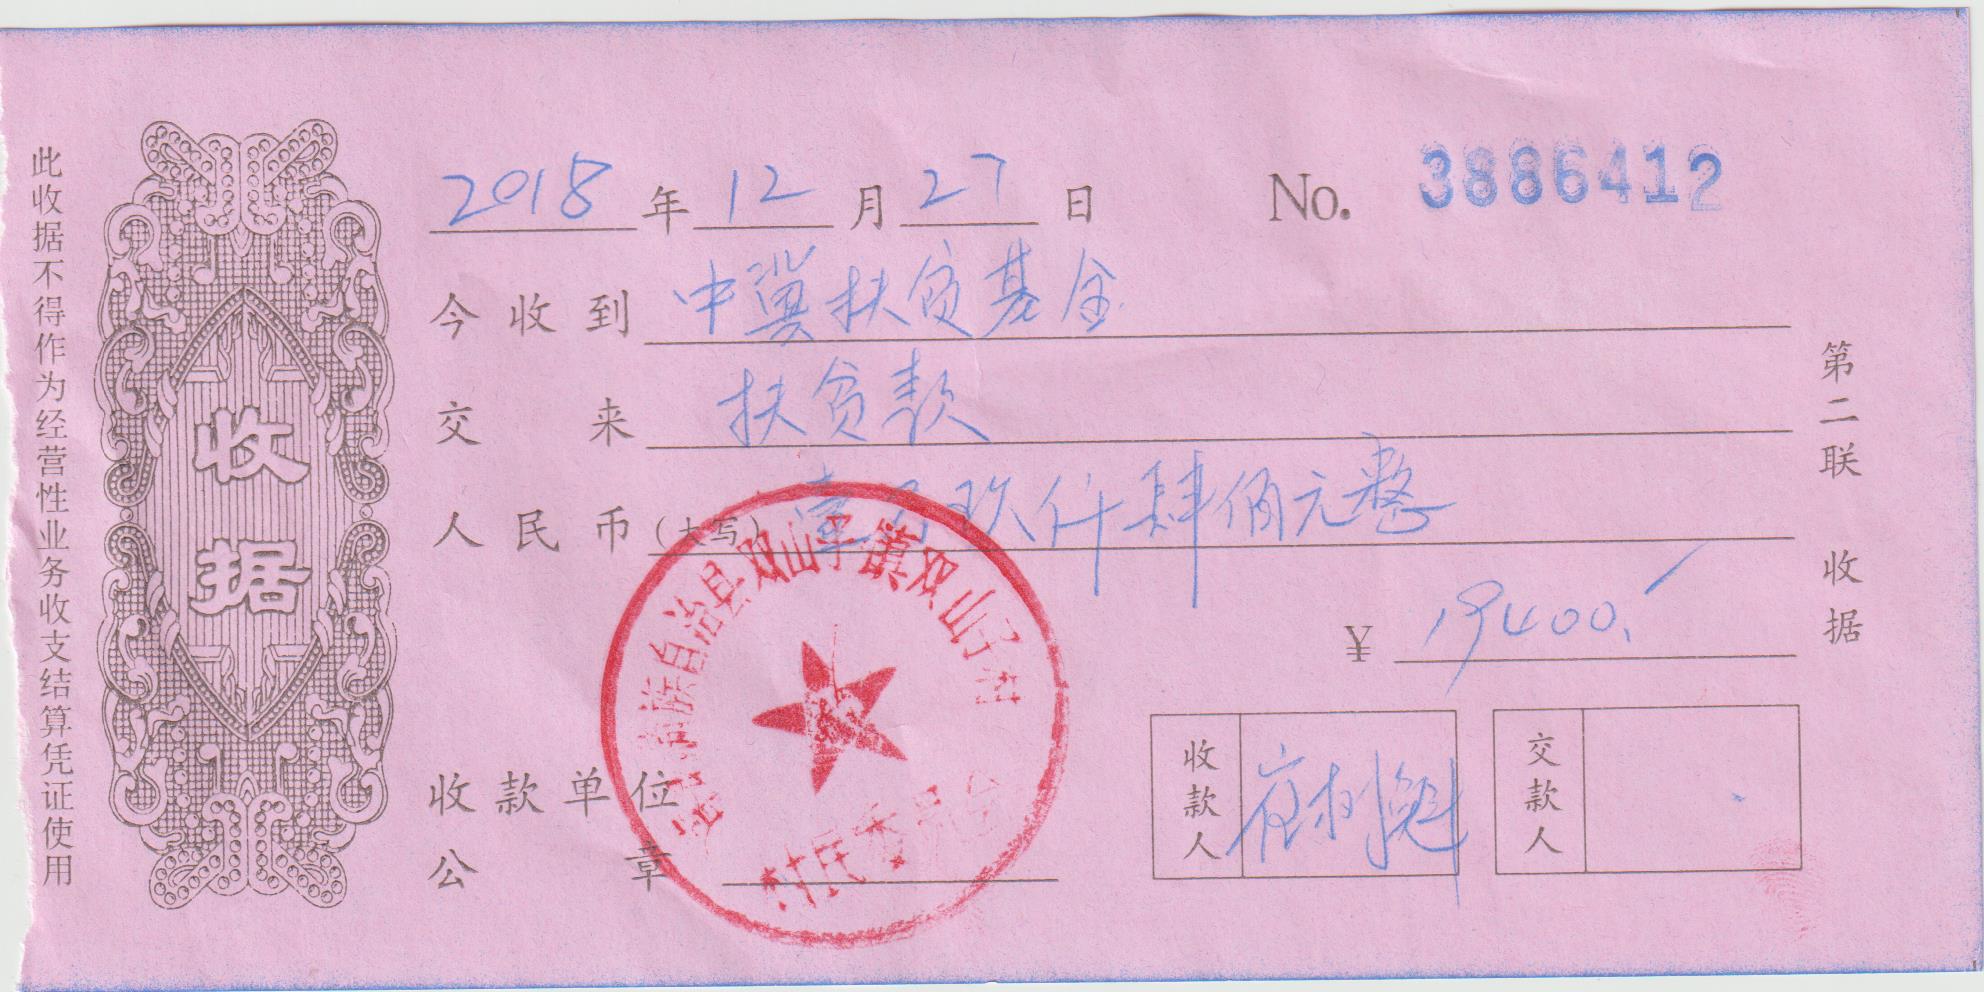 此收据不得作为经营性业务收支结算凭证使用
收据
2018 年 12 月 27 日
No. 3886412
今收到 中冀扶贫基金
交来 扶贫款
人民币(大写) 壹万玖仟肆佰元整
¥ 19400.
收款单位
公章
族自治县双山子镇双山子村
村民委员会
收款人
交款人
第二联 收据